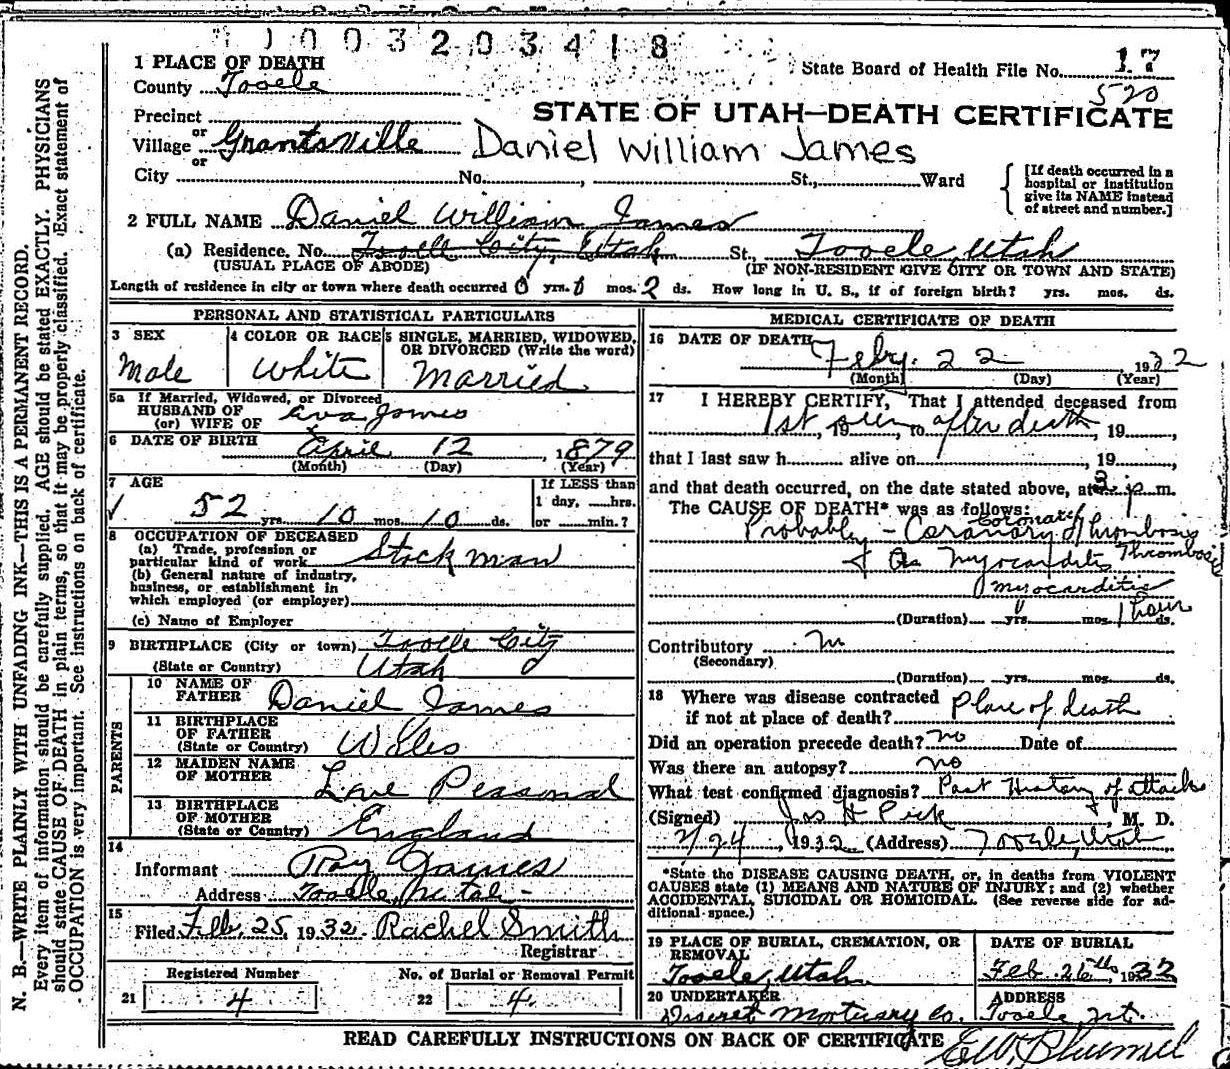 1003203418
1 PLACE OF DEATH
State Board of Health File No. 17
County Tooele
520
STATE OF UTAH—DEATH CERTIFICATE
Precinct
or
Village Grantsville Daniel William James
or
City No. , St., Ward
[If death occurred in a hospital or institution give its NAME instead of street and number.]
2 FULL NAME Daniel William James
(a) Residence. No. Tooele City, Utah St., Tooele, Utah
(USUAL PLACE OF ABODE) (IF NON-RESIDENT GIVE CITY OR TOWN AND STATE)
Length of residence in city or town where death occurred 0 yrs. 0 mos. 2 ds. How long in U. S., if of foreign birth? yrs. mos. ds.
PERSONAL AND STATISTICAL PARTICULARS
3 SEX
Male
4 COLOR OR RACE
White
5 SINGLE, MARRIED, WIDOWED, OR DIVORCED (Write the word)
Married
5a If Married, Widowed, or Divorced
HUSBAND OF
(or) WIFE OF Eva James
6 DATE OF BIRTH April 12, 1879
(Month) (Day) (Year)
7 AGE
52 yrs. 10 mos. 10 ds.
If LESS than
1 day, hrs.
or min.?
8 OCCUPATION OF DECEASED
(a) Trade, profession or
particular kind of work Stockman
(b) General nature of industry,
business, or establishment in
which employed (or employer)
(c) Name of Employer
9 BIRTHPLACE (City or town) Tooele City
(State or Country) Utah
PARENTS
10 NAME OF
FATHER Daniel James
11 BIRTHPLACE
OF FATHER
(State or Country) Wales
12 MAIDEN NAME
OF MOTHER
13 BIRTHPLACE
OF MOTHER
(State or Country) England
14
Informant Ray James
Address Tooele, Utah
15
Filed Feb. 25, 1932 Rachel Smith
Registrar
Registered Number
21 4
No. of Burial or Removal Permit
22 4
MEDICAL CERTIFICATE OF DEATH
16 DATE OF DEATH Feby. 22 1932
(Month) (Day) (Year)
17 I HEREBY CERTIFY, That I attended deceased from
1st seen, 19 to after death, 19 ,
that I last saw h alive on , 19 ,
and that death occurred, on the date stated above, at p. m.
The CAUSE OF DEATH* was as follows:
Coronary
Probably - Coronary Thrombosis
Myocarditis Thrombosis
myocarditis
(Duration) yrs. mos. 1 hour ds.
Contributory
(Secondary)
(Duration) yrs. mos. ds.
18 Where was disease contracted
if not at place of death? Place of death
Did an operation precede death? no Date of
Was there an autopsy? no
What test confirmed diagnosis? Past History of attacks
(Signed) Jos H Peck, M. D.
2/24, 1932 (Address) Tooele, Utah
*State the DISEASE CAUSING DEATH, or, in deaths from VIOLENT
CAUSES state (1) MEANS AND NATURE OF INJURY; and (2) whether
ACCIDENTAL, SUICIDAL OR HOMICIDAL. (See reverse side for ad-
ditional space.)
19 PLACE OF BURIAL, CREMATION, OR
REMOVAL
Tooele, Utah
DATE OF BURIAL
Feb. 26th, 1932
20 UNDERTAKER
Deseret Mortuary Co.
ADDRESS
Tooele, Ut.
READ CAREFULLY INSTRUCTIONS ON BACK OF CERTIFICATE
N. B.—WRITE PLAINLY WITH UNFADING INK—THIS IS A PERMANENT RECORD.
Every item of information should be carefully supplied. AGE should be stated EXACTLY. PHYSICIANS
should state CAUSE OF DEATH in plain terms, so that it may be properly classified. Exact statement of
OCCUPATION is very important. See instructions on back of certificate.